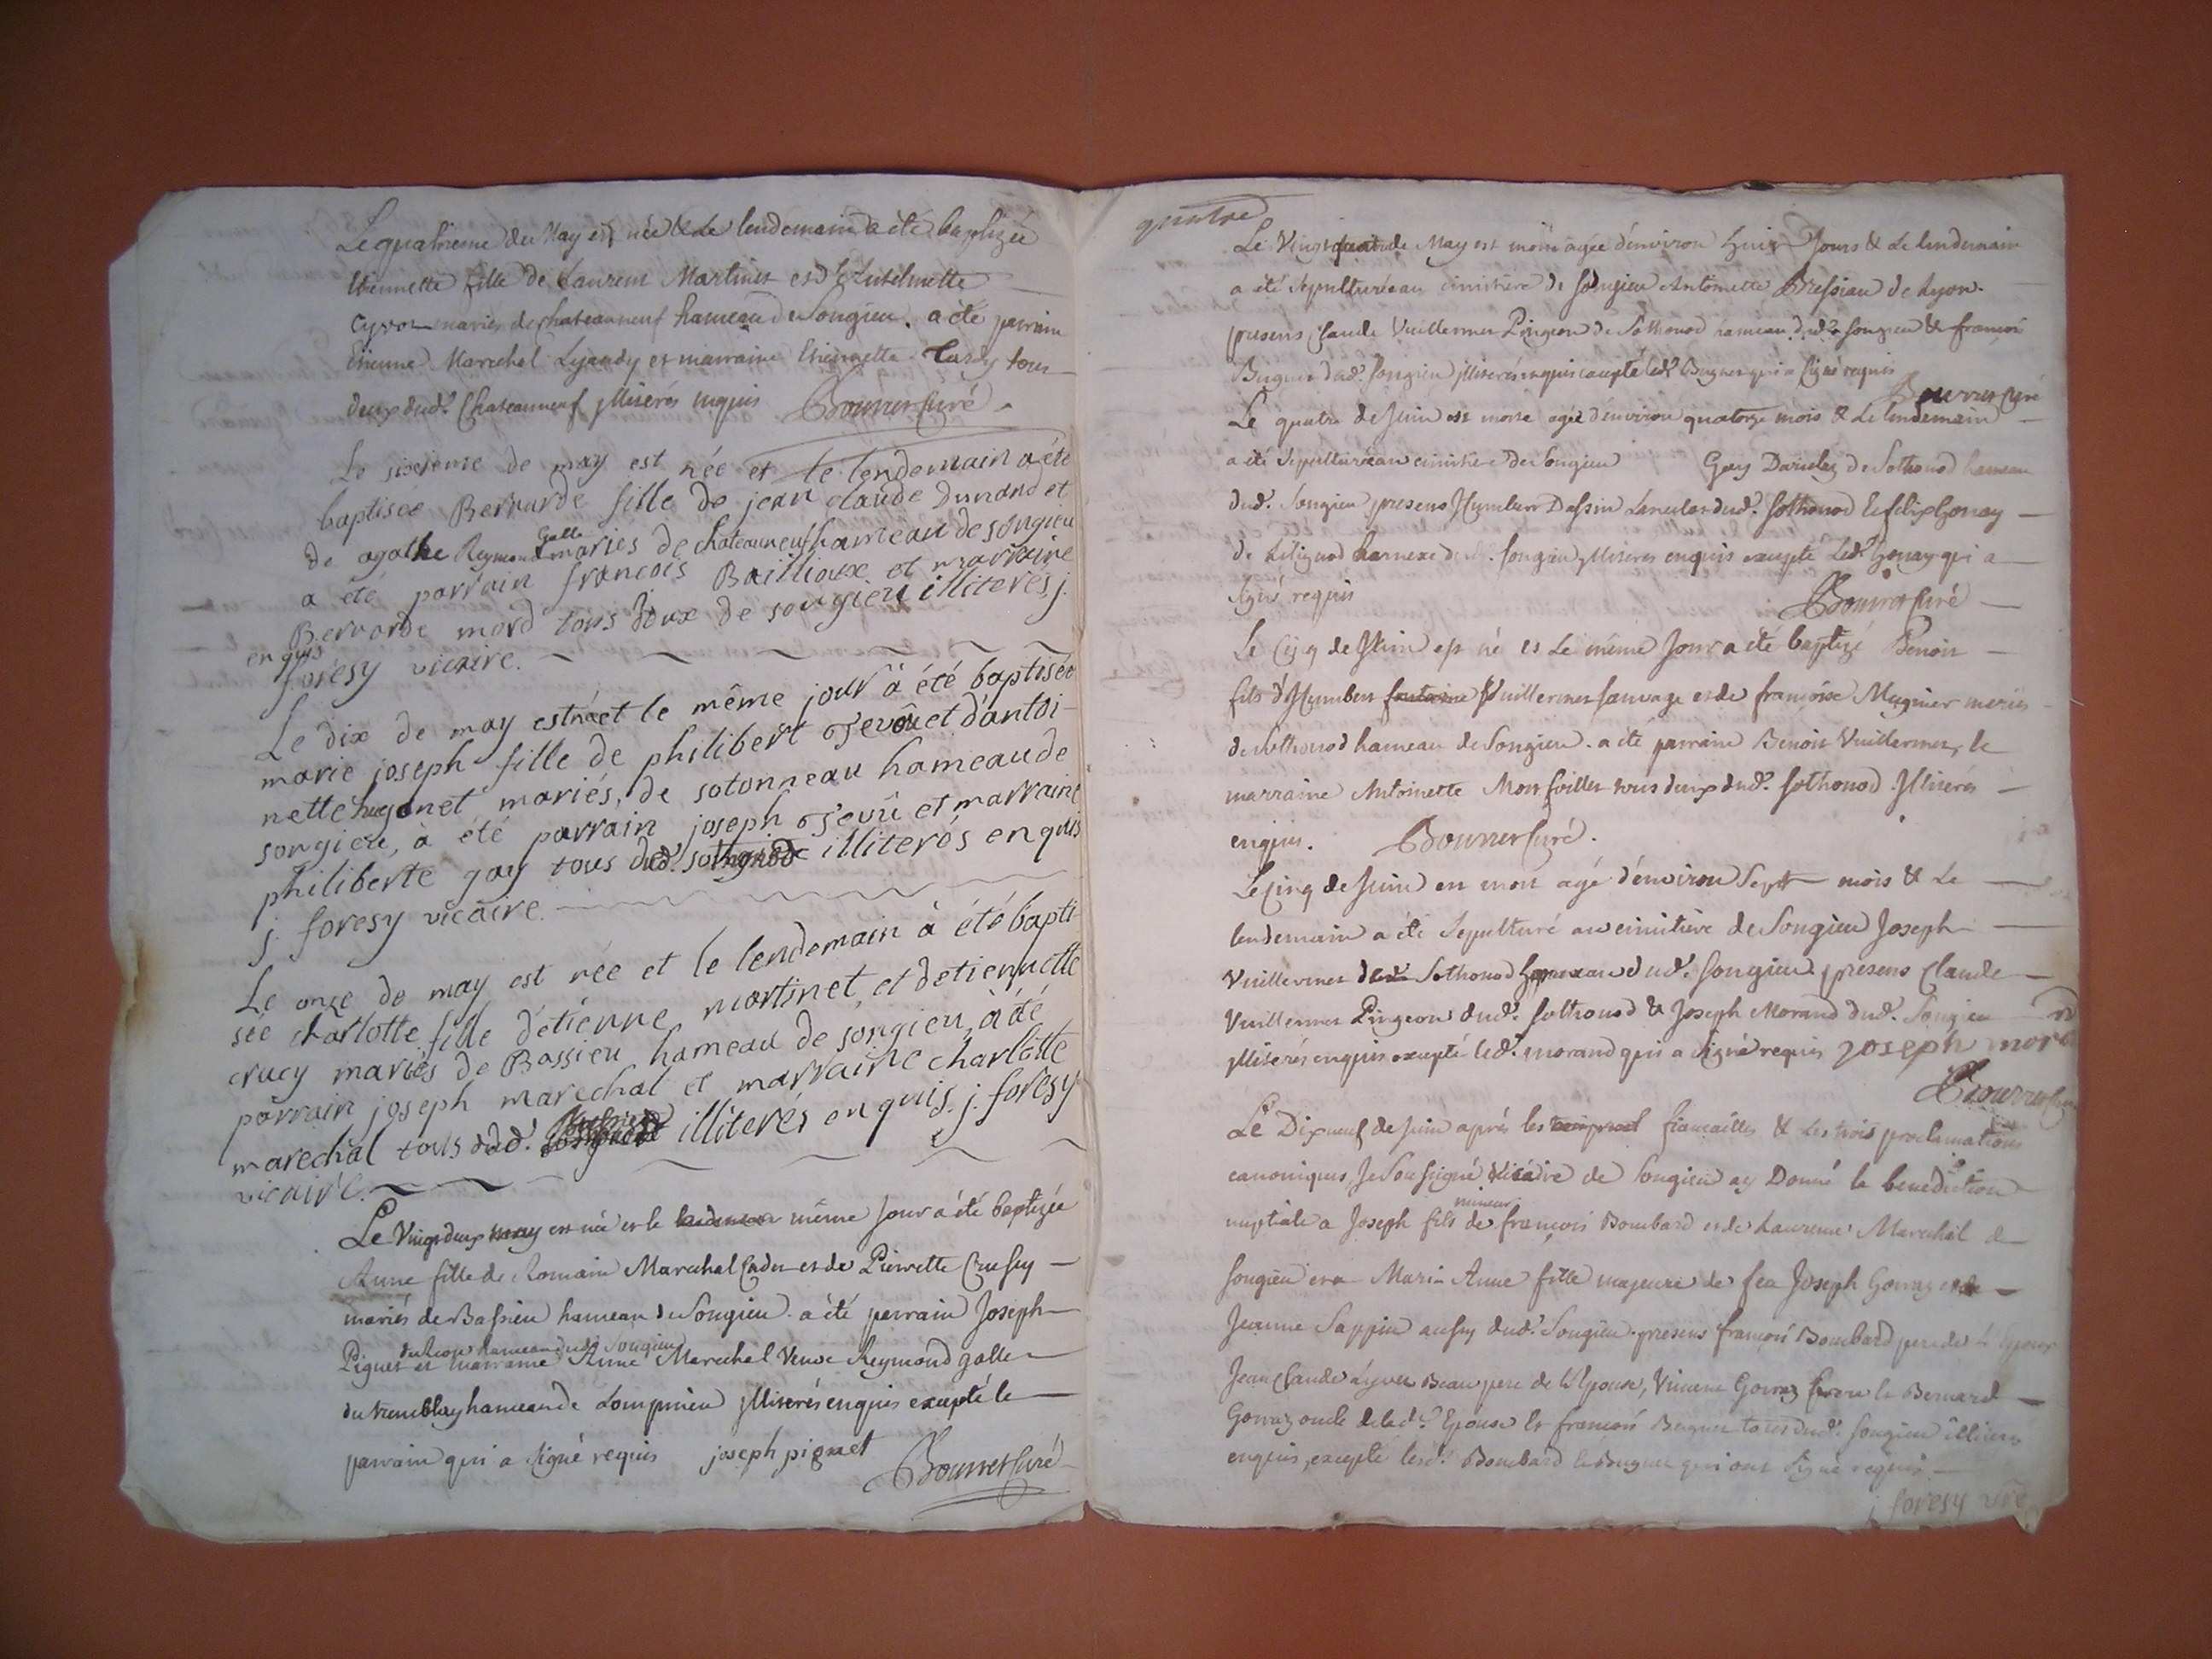 Le quatrieme du May est née & Le lendemain a été baptizée
Etiennette fille de Laurent Martinet et d'Anthelmette
Cyvoz mariés de chateauneuf hameau de Songieu. a été parrain
Etienne Marechal Lyaudy et marraine Etiennette Tardy tous
deux dud.t Chateauneuf jlliterés enquis Bourret Curé
Le sixieme de may est née et le lendemain a été
baptisée Bernarde fille de jean claude Dunand et
de agathe Reymond Galle mariés de chateauneuf hameau de songieu
a été parrain francois Baillioux et marraine
Bernarde mord tous deux de songieu illiterés j.
enquis
foresy vicaire.
Le dix de may est née et le même jour à été baptisée
marie joseph fille de philibert
nette hugonet mariés, de sotonneau hameau de
songieu, à été parrain joseph et marraine
philiberte gay tous dud.t illiterés enquis
j. foresy vicaire.
Le onze de may est née et le lendemain à été bapti-
sée charlotte fille d'étienne martinet, et detiennette
crucy mariés de Bassieu hameau de songieu, à été
parrain joseph marechal et marraine charlotte
marechal tous dud.t illiterés enquis. j. foresy
vicaire.
Le Vingt deux may est née et le lendemain même Jour a été baptizée
Anne fille de Romain Marechal Cadet et de Pierrette Crussy
mariés de Bassieu hameau de Songieu. a été parrain Joseph
hameau dud.t Songieu
Piguet et marraine Anne Marechal Veuve Reymond galle
du tremblay hameau de Lompnieu jlliterés enquis excepté le
parrain qui a signé requis joseph piguet
Bourret Curé
quatre
Le Vingt quatre de May est morte agée d'environ huit Jours & Le lendemain
a été sepulturée au cimitiere de Songieu Antoinette Bressian de Lyon.
presens Claude Vuillermet Pingeon de Sothonod hameau dud.t Songieu & francois
Buynet dud.t Songieu jlliterés enquis excepté led.t Buynet qui a signé requis
Bourret Curé
Le quatre de Juin est morte agée d'environ quatorze mois & Le lendemain
a été sepulturé au cimitiere de Songieu Gay de Sothonod hameau
dud.t Songieu presens Humbert Dassin dud.t Sothonod & felix Gonay
de hameau de Songieu jlliterés enquis excepté Led.t Gonay qui a
signé requis Bourret Curé
Le Cinq de Juin est né et Le même Jour a été baptizé Benoit
fils d'Humbert fontaine Vuillermet Sauvage et de françoise Mugnier mariés
de Sothonod hameau de Songieu. a été parrain Benoit Vuillermet, le
marraine Antoinette tous deux dud.t Sothonod. Jlliterés
enquis. Bourret Curé.
Le Cinq de Juin est mort agé d'environ Sept mois & Le
lendemain a été Sepulturé au cimitiere de Songieu Joseph
Vuillermet de Sothonod hameau dud.t Songieu. presens Claude
Vuillermet Pingeon dud.t Sothonod & Joseph Morand dud.t Songieu
jlliterés enquis excepté led.t morand qui a signé requis joseph morand
Bourret Curé
Le Dix neuf de Juin aprés les fiancailles & Les trois proclamations
canoniques, Je Soussigné Vicaire de Songieu ay Donné la benediction
mineur
nuptiale a Joseph fils de françois Bombard et de Laurence Marechal de
Songieu et a Marie Anne fille majeure de feu Joseph Gorraz et de
Jeanne Sappin aussy dud.t Songieu. presens françois Bombard pere de L'époux
Jean Claude Beau pere de L'Epouse, Vincent Gorraz frere & Bernard
Gorraz oncle de lad.te Epouse & francois Buynet tous dud.t Songieu illiteres
enquis, excepté lesd.ts Bombard & Buynet qui ont signé requis
j foresy vre